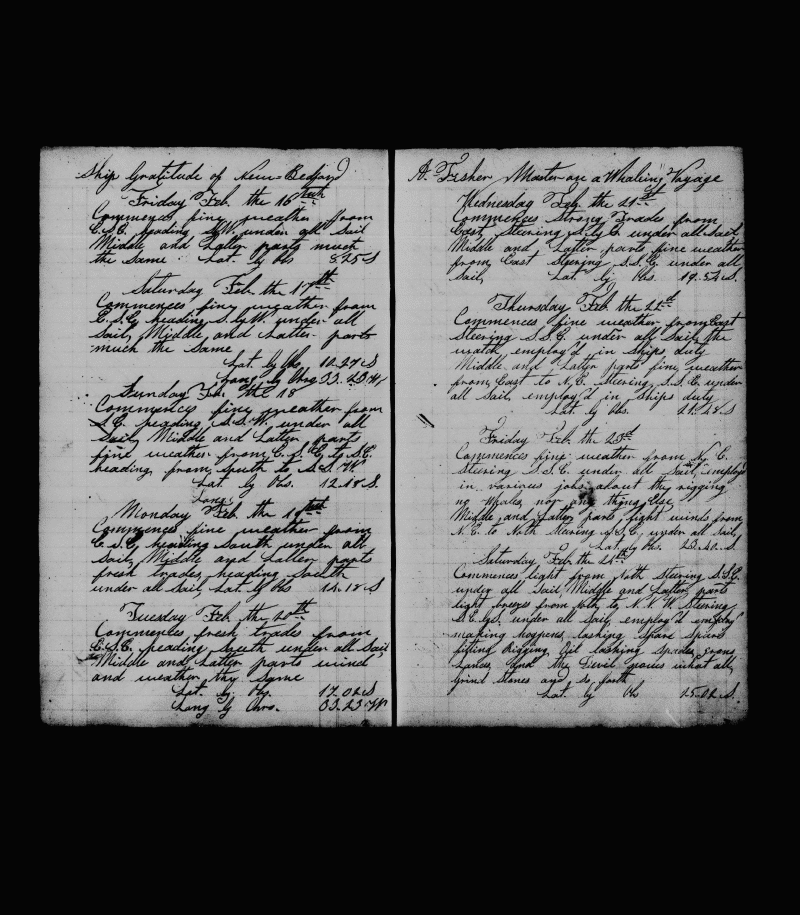 Ship Gratitude of New=Bedford
Friday Feb. the 16teeth
Commences fine weather from
E.S.E. heading S.W. under all Sail
Middle and Latter parts much
the same Lat. by Obs 8.25 S
Saturday Feb. the 17th
Commences fine weather from
E.S.E. heading S. by W. under all
Sail, Middle and Latter parts
much the same
Lat. by Obs 10.27 S
Long by Chro 33.23 W
Sunday Feb. the 18
Commences fine weather from
S.E. heading S.S.W. under all
Sail, Middle and Latter parts
fine weather from E.S.E. to S.E.
heading from South to S.S.W.
Lat. by Obs. 12.18 S.
Long.
Monday Feb. the 19teth
Commences fine weather from
E.S.E. heading South under all
Sail, Middle and Latter parts
fresh trades heading South
under all Sail, Lat. by Obs 14.18 S
Tuesday Feb. the 20th
Commences fresh trades from
E.S.E. heading South under all Sail
Middle and Latter parts wind
and weather the same
Lat. by Obs. 17.02 S
Long by Chro. 33.23 W
A. Fisher Master on a Whaleing Voyage
Wednesday Feb. the 21st
Commences Strong Trades from
East, Steering S. by E. under all Sail
Middle and Latter parts fine weather
from East Steering S.S.E. under all
Sail, Lat by Obs. 19.54 S.
Thursday Feb. the 22d
Commences fine weather from East
Steering S.S.E. under all Sail, the
watch employ'd in Ships duty
Middle and Latter parts fine weather
from East to N.E. Steering S.S.E. under
all Sail, employ'd in Ships duty
Lat by Obs. 21.48 S
Friday Feb. the 23d
Commences fine weather from N.E.
Steering S.S.E. under all Sail, employ
in various jobs about the rigging
no Whales nor any thing Else
Middle and Latter parts light winds from
N.E. to Noth Steering S.S.E. under all Sail,
Lat by Obs. 23.40. S
Saturday Feb. the 24th
Commences light from Noth Steering S.S.E.
under all Sail, Middle and Latter parts
light breezes from Noth to N.N.W. Steering
under all Sail, employ'd
making hoppens, lashing spare spars
fitting rigging Oil lashing spades, irons
Lances, and the Devil knows what all,
Grind Stones and so forth
Lat. by Ob 25.02 S.